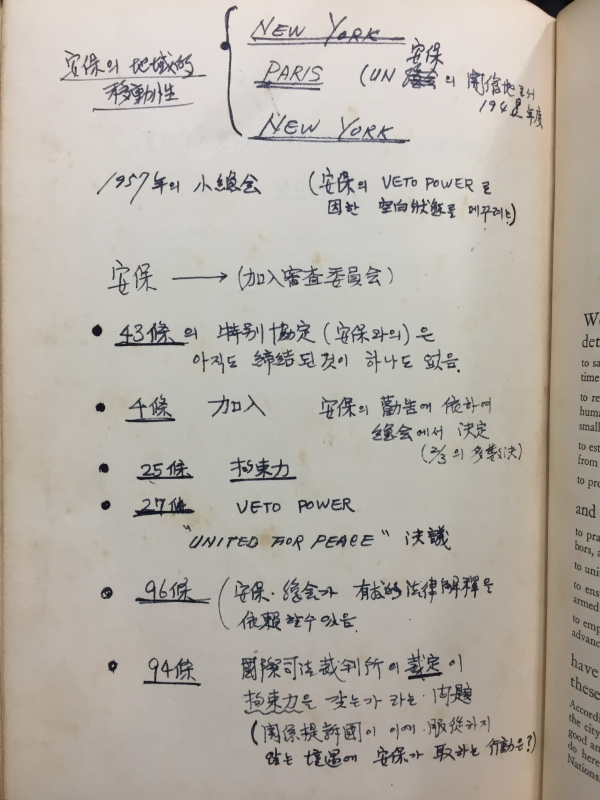 NEW YORK
安保의 地域的
移動性
PARIS (UN 安保 總会의 開信地로서
1948年度
NEW YORK
1957年의 小總会 (安保의 VETO POWER로
因한 空白狀態를 메꾸려는)
安保 → (加入審査委員会)
• 43條의 特別協定 (安保와의)은
아직도 締結된것이 하나도 없음.
• 4條 加入 安保의 勸告에 依하여
總会에서 決定
(2/3의 多數決)
• 25條 拘束力
• 27條 VETO POWER
"UNITED FOR PEACE" 決議
• 96條 (安保·總会가 有權的 法律解釋을
依賴할수 있음.
• 94條 國際司法裁判所의 裁定이
拘束力을 갖는가 라는 問題
(関係提訴國이 이에 服從하지
않는 境遇에 安保가 取하는 行動은?)
We
det
to sa
time
to re
huma
small
to est
from
to pro
and
to pra
bors, a
to uni
to ens
armed
to emp
advanc
have
these
Accordi
the city
good an
do here
Nations.